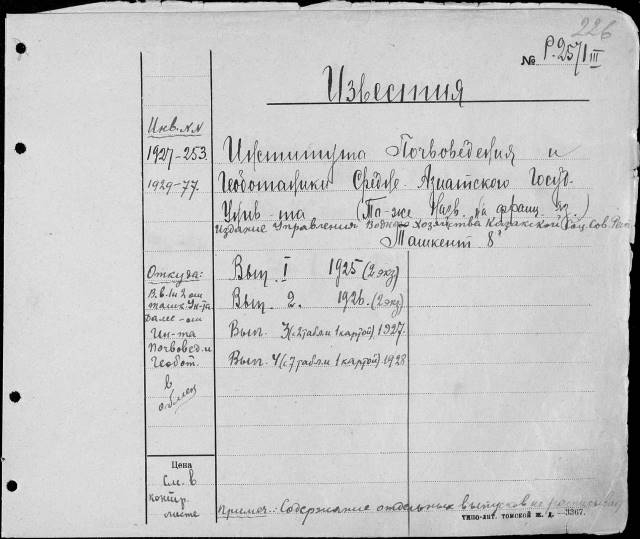 226
№ Р.257/III
Известия
Инв. NN
1927-253.
1929-77.
Института Почвоведения и
Геоботаники Средне-Азиатского Госуд.
Унив-та (То-же назв. на франц. яз.)
издание Управления Водного Хозяйства Казакской Соц. Сов. Респ.
Ташкент 8°
Откуда:
В.в. 1 и 2 от
Ташк. Ун-та
Далее - от
Ин-та
Почвовед. и
Геобот.
в
обмен
Вып. I 1925 (2 экз)
Вып. 2. 1926. (2 экз)
Вып. 3 (с 2 табл. и 1 картой) 1927.
Вып. 4 (с 7 табл. и 1 картой) 1928
Цена
См. в
контр.
листе
Примеч.: Содержание отдельных выпусков не
ТИПО-ЛИТ. ТОМСКОЙ Ж. Д. —3367.